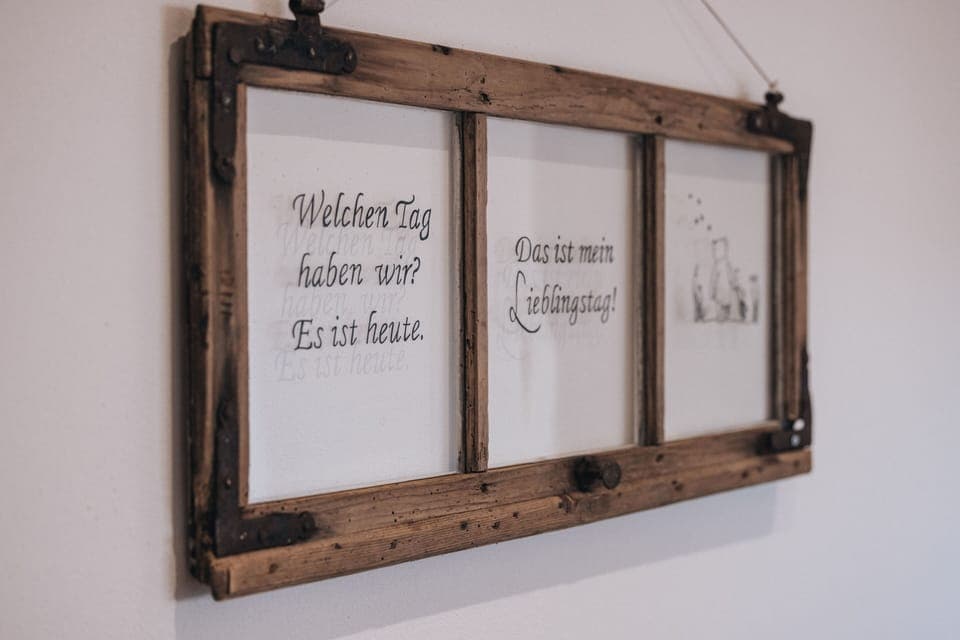 Welchen Tag
haben wir?
Es ist heute.
Das ist mein
Lieblingstag!